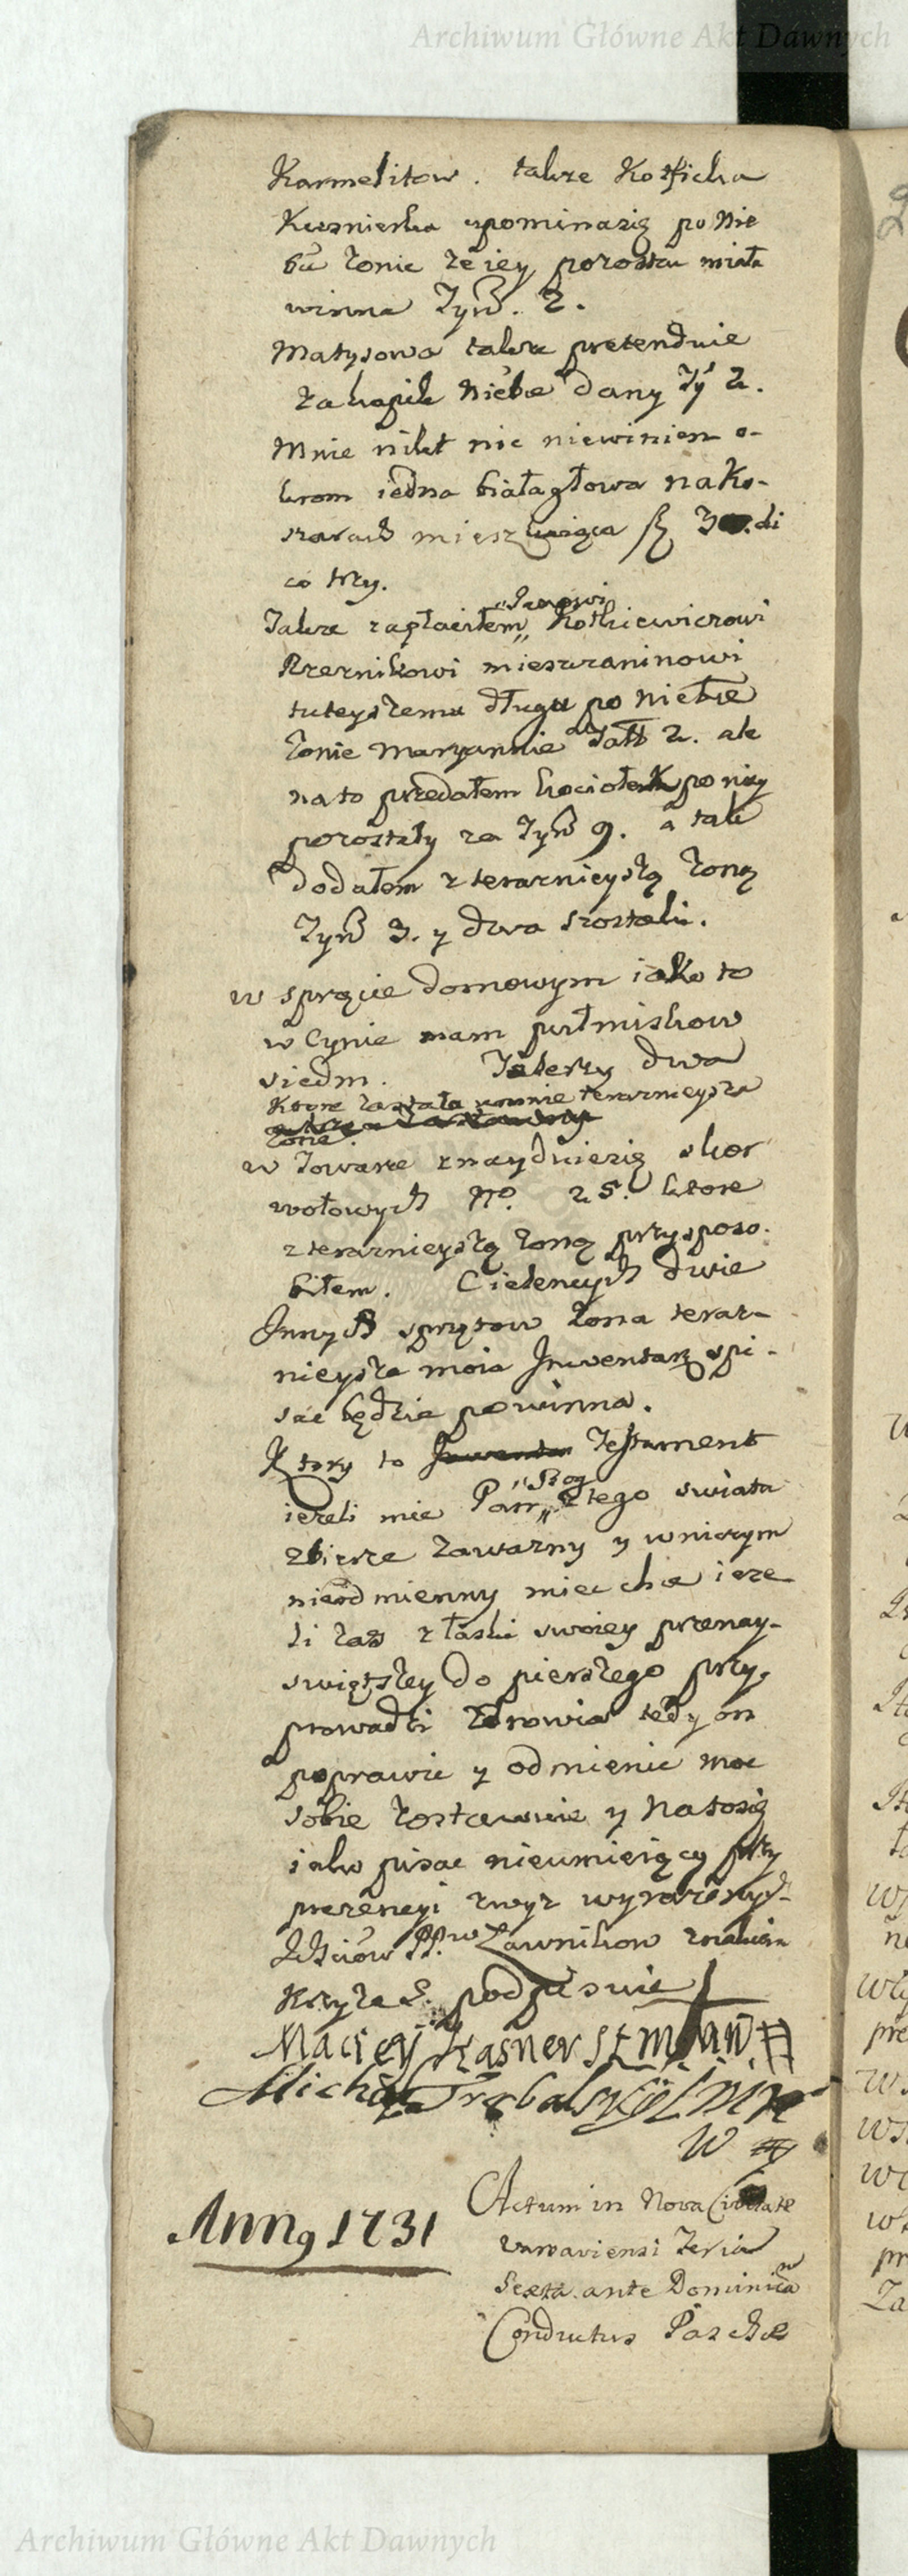 Archiwum Główne Akt Dawnych
Karmelitow. takze Kosficka
Kusnierka upominasię po Nie
bu żonie że iey porostku miała
winna Tynf. 2.
Matysowa także pretenduie
Za kapik Niebie dany Ty 2.
Mnie nikt nic niewinien o-
krom iedna białagłowa na Ko-
szarach mieszkaiąca
co trzy.
Także zapłaciłem „Janowi„ Kotkiewiczowi
Rzeznikowi mieszczaninowi
tuteyszemu długu po Niebie
żonie Maryannie 2. ale
na to przedałem kociołek po niey
pozostały za Tynf 9. a tak
dodałem z terazniejszą żoną
Tynf 3. y dwa szostaki.
w sprzęcie domowym iako to
w Cynie mam pułmiskow
siedm. Talerzy dwa
Ktore zastała umnie teraznieysza
żona.
w Towarze znayduiesię skor
wołowych No. 25. ktore
z teraznieyszą żoną przysposo-
biłem. Cielencych dwie
Innych sprzętow żona teraz-
nieysza moia Inwentarz spi-
sac będzie powinna.
Ktory to Testament
iezeli mie Pan „Bog„ z tego swiata
zbierze zawarzny y wniczym
nieodmienny miec chce ieze
li zas z łaski swoiey przenay-
swiętszey do pierszego przy-
prowadzi Zdrowia tedy on
poprawic y odmienic moc
sobie zostawuie y Natosię
iako pisac nieumieiący przy
prezencyi zwyz wyrazonych
Ichciow PP.w Ławnikow znakiem
Krzyża S. podpisuie †
Maciey Kasner
Michał Trębalski
Anno 1731
Actum in Nova Civitate
Varsaviensi Feria
Sexta ante Dominica
Conductus Paschae
Archiwum Główne Akt Dawnych